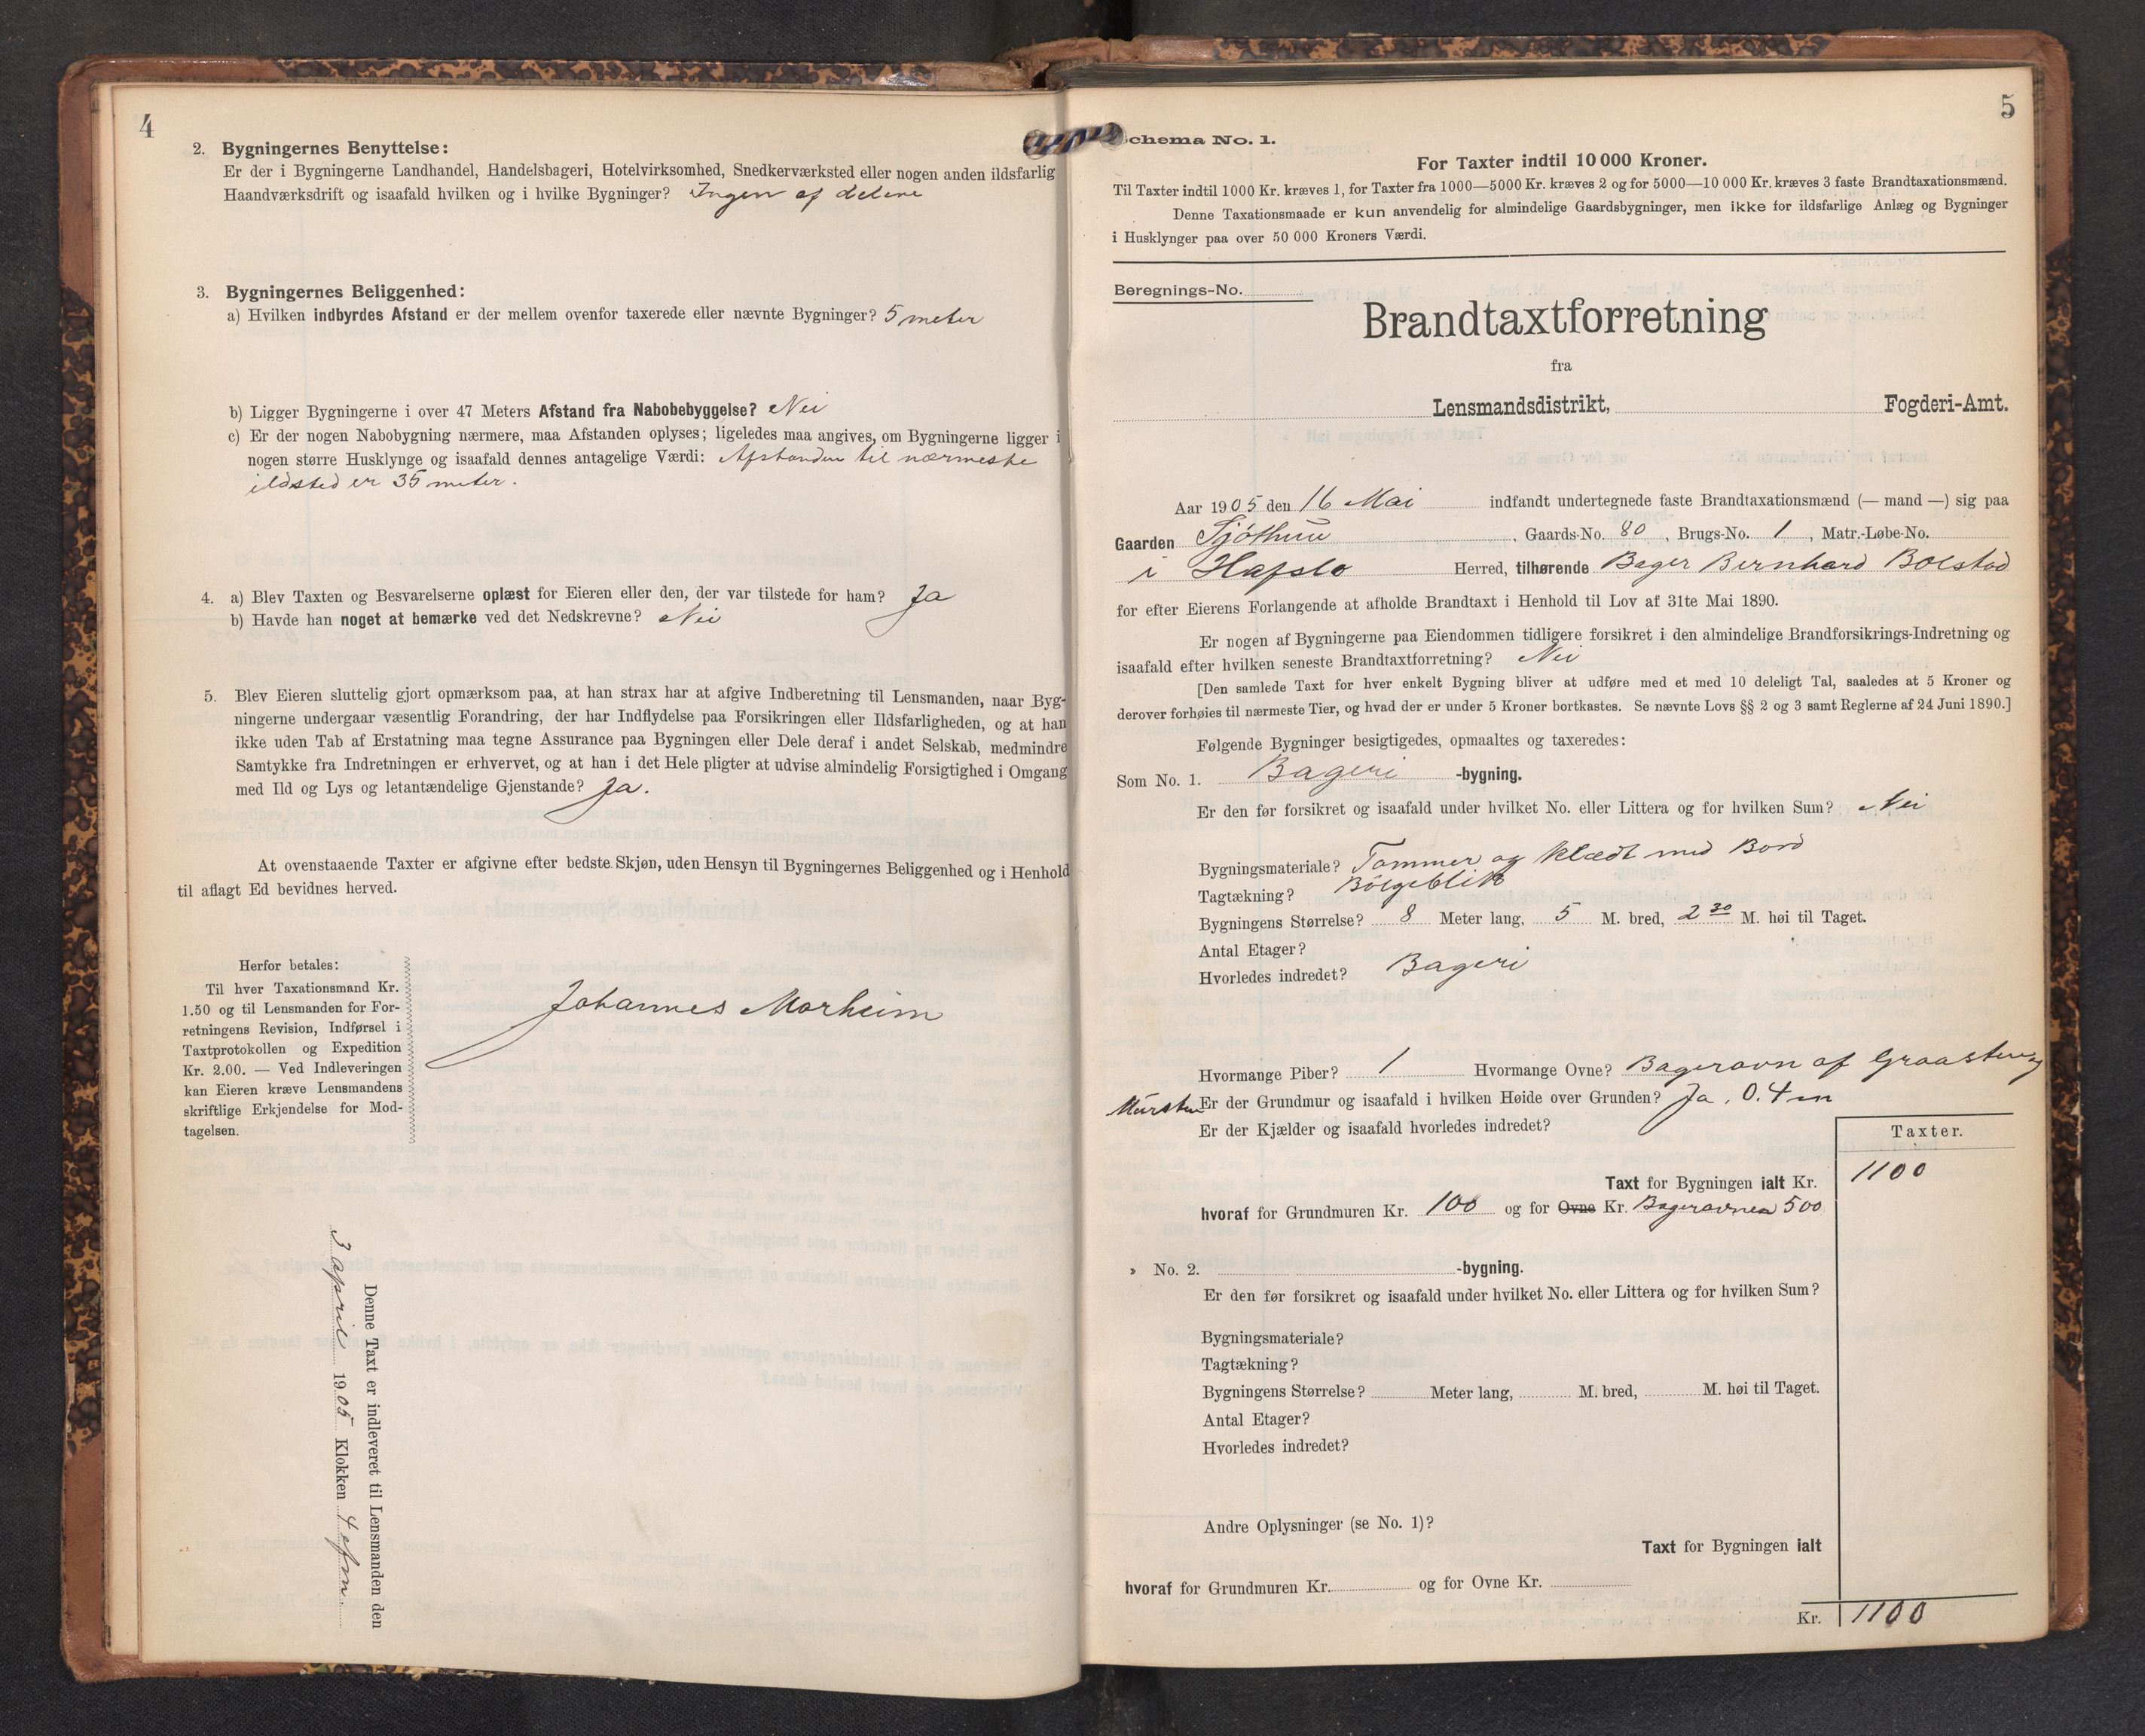 4
2. Bygningernes Benyttelse:
Er der i Bygningerne Landhandel, Handelsbageri, Hotelvirksomhed, Snedkerværksted eller nogen anden ildsfarlig
Haandværksdrift og isaafald hvilken og i hvilke Bygninger? Ingen af delene
3. Bygningernes Beliggenhed:
a) Hvilken indbyrdes Afstand er der mellem ovenfor taxerede eller nævnte Bygninger? 5 meter
b) Ligger Bygningerne i over 47 Meters Afstand fra Nabobebyggelse? Nei
c) Er der nogen Nabobygning nærmere, maa Afstanden oplyses; ligeledes maa angives, om Bygningerne ligger i
nogen større Husklynge og isaafald dennes antagelige Værdi: Afstanden til nærmeste
ildsted er 35 meter.
4. a) Blev Taxten og Besvarelserne oplæst for Eieren eller den, der var tilstede for ham? Ja
b) Havde han noget at bemærke ved det Nedskrevne? Nei
5. Blev Eieren sluttelig gjort opmærksom paa, at han strax har at afgive Indberetning til Lensmanden, naar Byg-
ningerne undergaar væsentlig Forandring, der har Indflydelse paa Forsikringen eller Ildsfarligheden, og at han
ikke uden Tab af Erstatning maa tegne Assurance paa Bygningen eller Dele deraf i andet Selskab, medmindre
Samtykke fra Indretningen er erhvervet, og at han i det Hele pligter at udvise almindelig Forsigtighed i Omgang
med Ild og Lys og letantændelige Gjenstande? Ja.
At ovenstaaende Taxter er afgivne efter bedste Skjøn, uden Hensyn til Bygningernes Beliggenhed og i Henhold
til aflagt Ed bevidnes herved.
Herfor betales:
Til hver Taxationsmand Kr.
1.50 og til Lensmanden for For-
retningens Revision, Indførsel i
Taxtprotokollen og Expedition
Kr. 2.00. — Ved Indleveringen
kan Eieren kræve Lensmandens
skriftlige Erkjendelse for Mod-
tagelsen.
Johannes Morheim
Denne Taxt er indleveret til Lensmanden den
3 april 1905 Klokken 4 efm.
5
Schema No. 1.
For Taxter indtil 10 000 Kroner.
Til Taxter indtil 1000 Kr. kræves 1, for Taxter fra 1000—5000 Kr. kræves 2 og for 5000—10 000 Kr. kræves 3 faste Brandtaxationsmænd.
Denne Taxationsmaade er kun anvendelig for almindelige Gaardsbygninger, men ikke for ildsfarlige Anlæg og Bygninger
i Husklynger paa over 50 000 Kroners Værdi.
Beregnings-No.
Brandtaxtforretning
fra
Lensmandsdistrikt, Fogderi-Amt.
Aar 1905 den 16 Mai indfandt undertegnede faste Brandtaxationsmænd (— mand —) sig paa
Gaarden Sjøthun, Gaards-No. 80, Brugs-No. 1, Matr.-Løbe-No.
i Hafslo Herred, tilhørende Bager Bernhard Bolstad
for efter Eierens Forlangende at afholde Brandtaxt i Henhold til Lov af 31te Mai 1890.
Er nogen af Bygningerne paa Eiendommen tidligere forsikret i den almindelige Brandforsikrings-Indretning og
isaafald efter hvilken seneste Brandtaxtforretning? Nei
[Den samlede Taxt for hver enkelt Bygning bliver at udføre med et med 10 deleligt Tal, saaledes at 5 Kroner og
derover forhøies til nærmeste Tier, og hvad der er under 5 Kroner bortkastes. Se nævnte Lovs §§ 2 og 3 samt Reglerne af 24 Juni 1890.]
Følgende Bygninger besigtigedes, opmaaltes og taxeredes:
Som No. 1. Bageri -bygning.
Er den før forsikret og isaafald under hvilket No. eller Littera og for hvilken Sum? Nei
Bygningsmateriale? Tømmer og klædt med Bord
Tagtækning? Bølgeblik
Bygningens Størrelse? 8 Meter lang, 5 M. bred, 2 30 M. høi til Taget.
Antal Etager?
Hvorledes indredet? Bageri
Hvormange Piber? 1 Hvormange Ovne? Bagerovn af Graasten og
Mursten
Er der Grundmur og isaafald i hvilken Høide over Grunden? Ja, 0.4 m
Er der Kjælder og isaafald hvorledes indredet?
Taxter.
Taxt for Bygningen ialt Kr. 1100
hvoraf for Grundmuren Kr. 100 og for Ovne Kr. Bagerovnen 500
» No. 2. -bygning.
Er den før forsikret og isaafald under hvilket No. eller Littera og for hvilken Sum?
Bygningsmateriale?
Tagtækning?
Bygningens Størrelse? Meter lang, M. bred, M. høi til Taget.
Antal Etager?
Hvorledes indredet?
Andre Oplysninger (se No. 1)?
Taxt for Bygningen ialt
hvoraf for Grundmuren Kr. og for Ovne Kr.
Kr. 1100